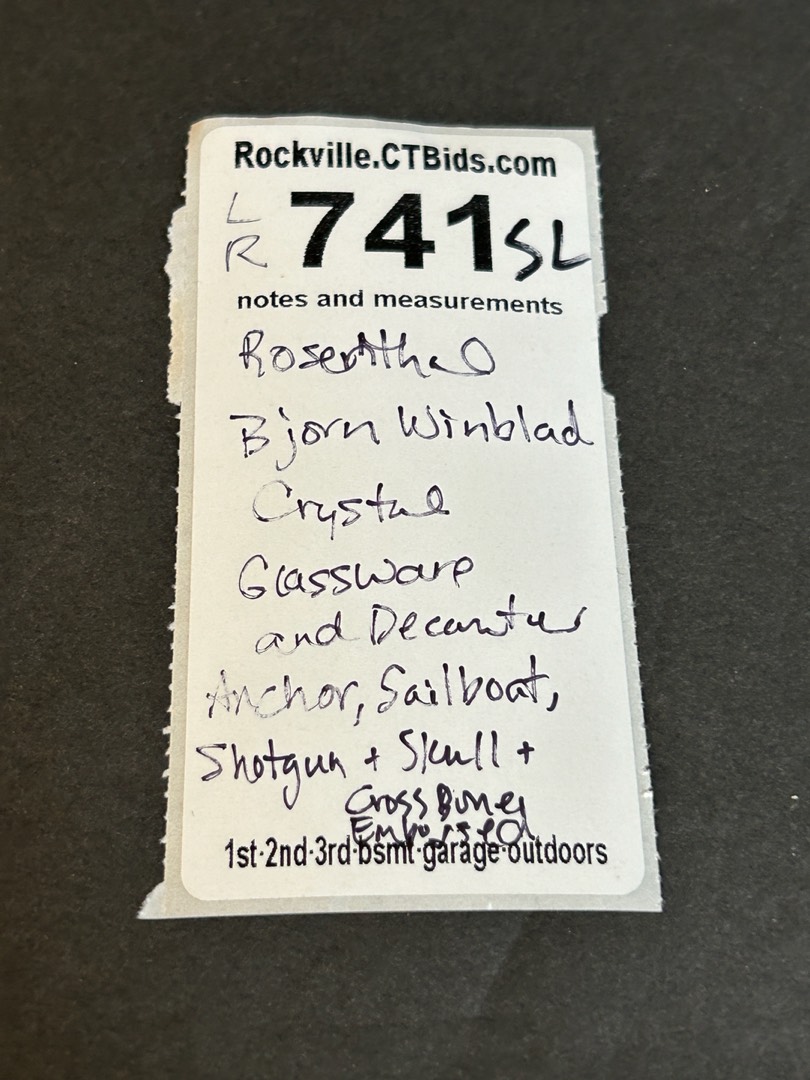 Rockville.CTBids.com
L R 741 SL
notes and measurements
Rosenthal
Bjorn Winblad
Crystal
Glassware
and Decanter
Anchor, Sailboat,
Shotgun + Skull +
Cross Bones
Embossed
1st·2nd·3rd·bsmt·garage·outdoors